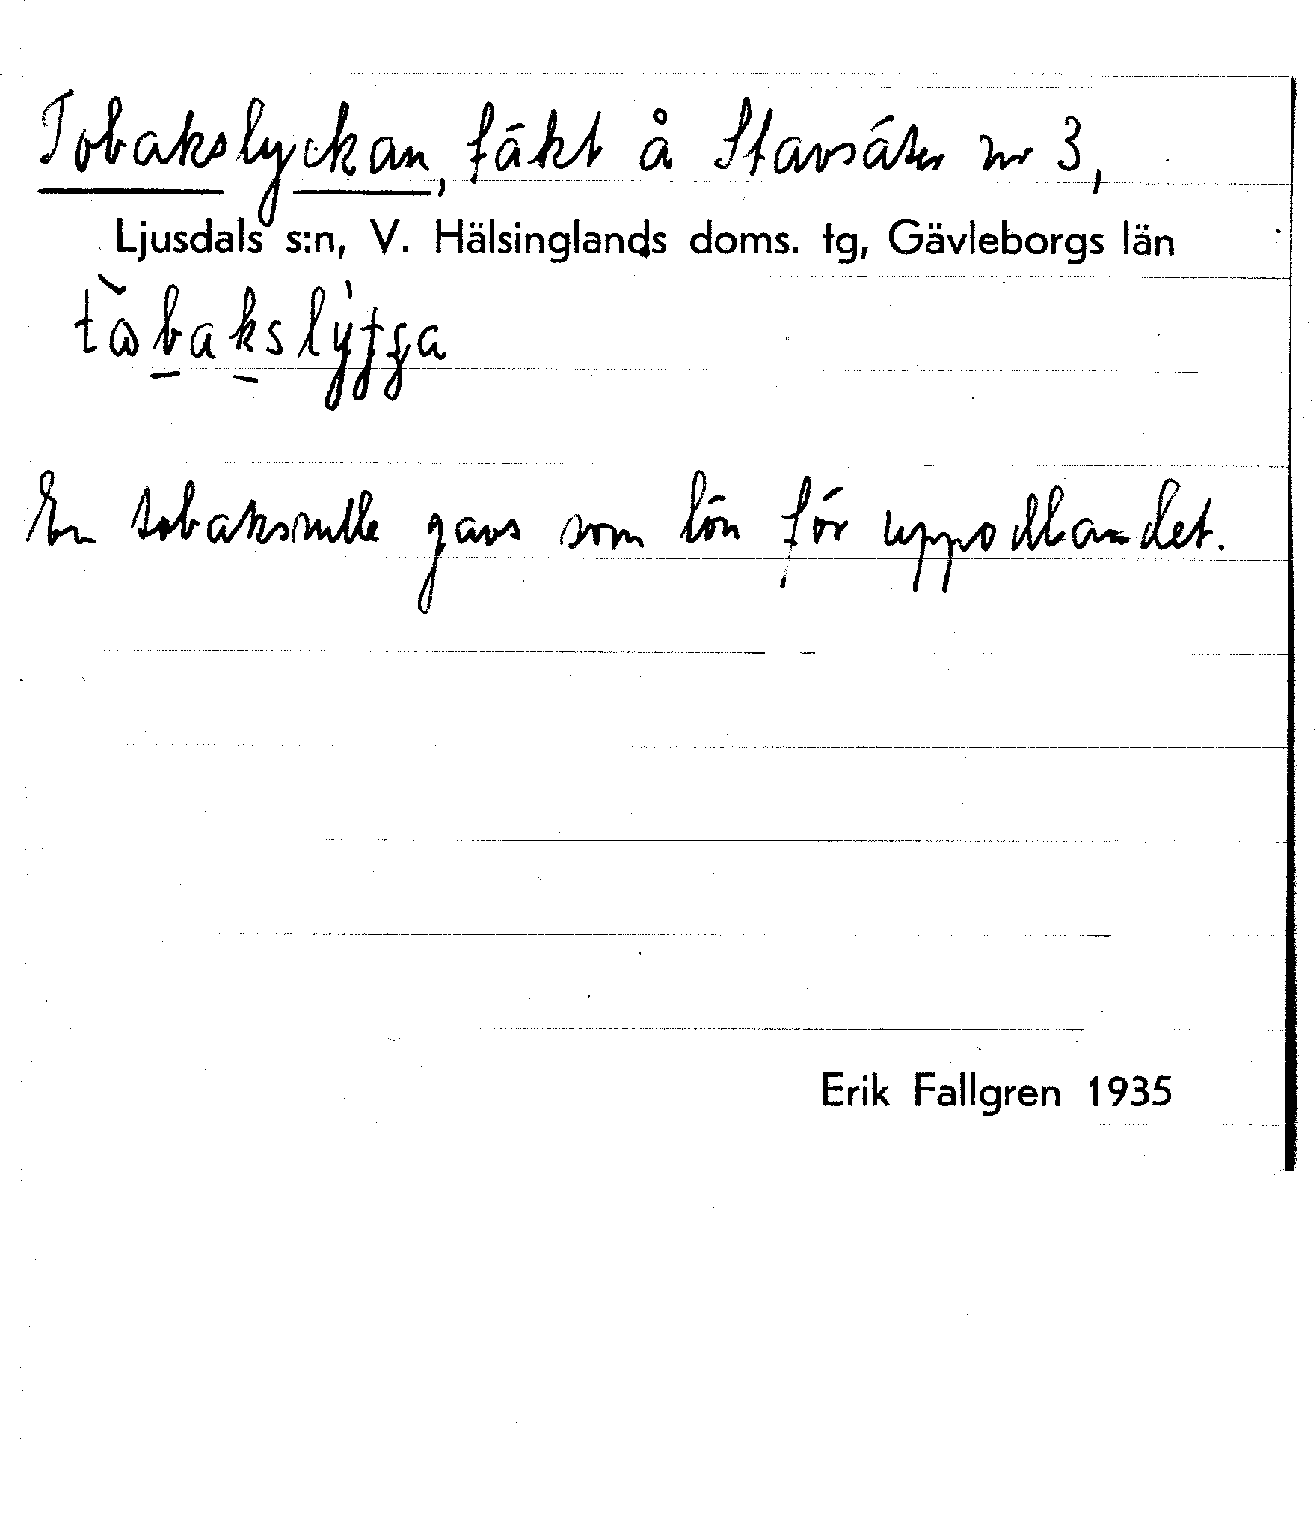 Tobakslyckan, fäkt å Stavsäter nr 3,
Ljusdals s:n, V. Hälsinglands doms. tg, Gävleborgs län
En tobaksrulle gavs som lön för uppodlandet.
Erik Fallgren 1935